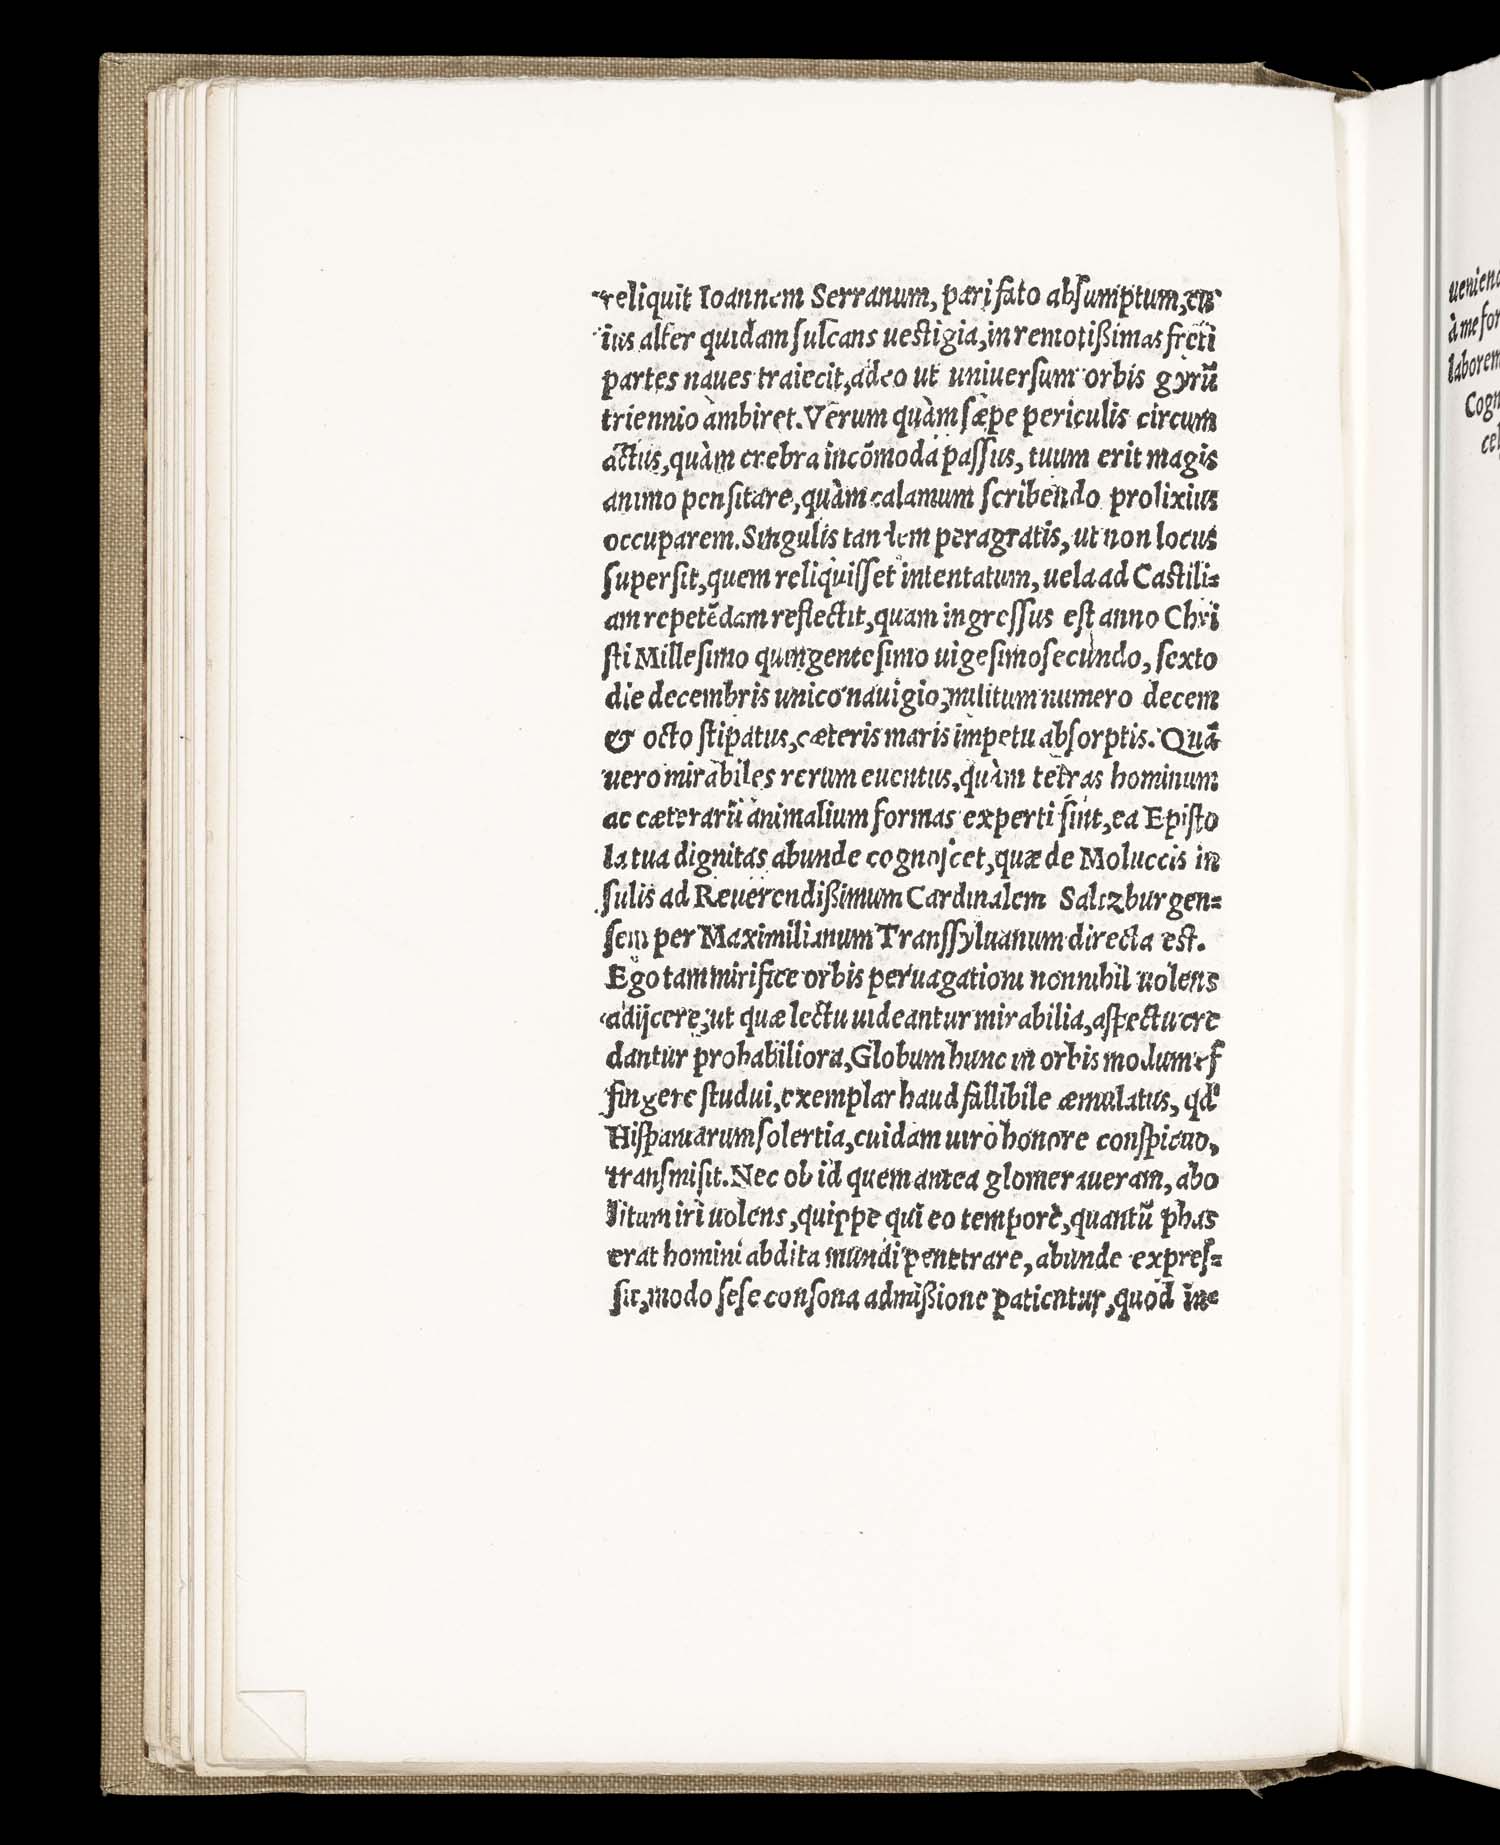 reliquit Ioannem Serranum, pari fato abſumptum, cu
ius alter quidam ſulcans ueſtigia, in remotißimas freti
partes naues traiecit, adeo ut uniuerſum orbis gyrũ
triennio ambiret. Verum quàm ſæpe periculis circum
actus, quàm crebra incõmoda paſſus, tuum erit magis
animo penſitare, quàm calamum ſcribendo prolixius
occuparem. Singulis tandem peragratis, ut non locus
ſuperſit, quem reliquiſſet intentatum, uela ad Caſtili⸗
am repetẽdam reflectit, quam ingreſſus eſt anno Chri
ſti Milleſimo quingenteſimo uigeſimoſecundo, ſexto
die decembris unico nauigio, militum numero decem
& octo ſtipatus, cæteris maris impetu abſorptis. Quã
uero mirabiles rerum euentus, quàm tetras hominum
ac cæterarũ animalium formas experti ſint, ea Epiſto
la tua dignitas abunde cognoſcet, quæ de Moluccis in
ſulis ad Reuerendißimum Cardinalem Saltzburgen⸗
ſem per Maximilianum Tranſſyluanum directa est.
Ego tam mirifice orbis peruagationi nonnihil uolens
adijcere, ut quæ lectu uideantur mirabilia, aſpectu cre
dantur probabiliora, Globum hunc in orbis modum ef
fingere ſtudui, exemplar haud fallibile æmulatus, qd'
Hiſpaniarum ſolertia, cuidam uiro honore conſpicuo,
tranſmiſit. Nec ob id quem antea glomeraueram, abo
litum iri uolens, quippe qui eo temporè, quantũ phas
erat homini abdita mundi penetrare, abunde expreſ⸗
ſit, modo ſeſe conſona admißione patientur, quod in⸗
ueniend
à me for
laborem
Cogn
cel